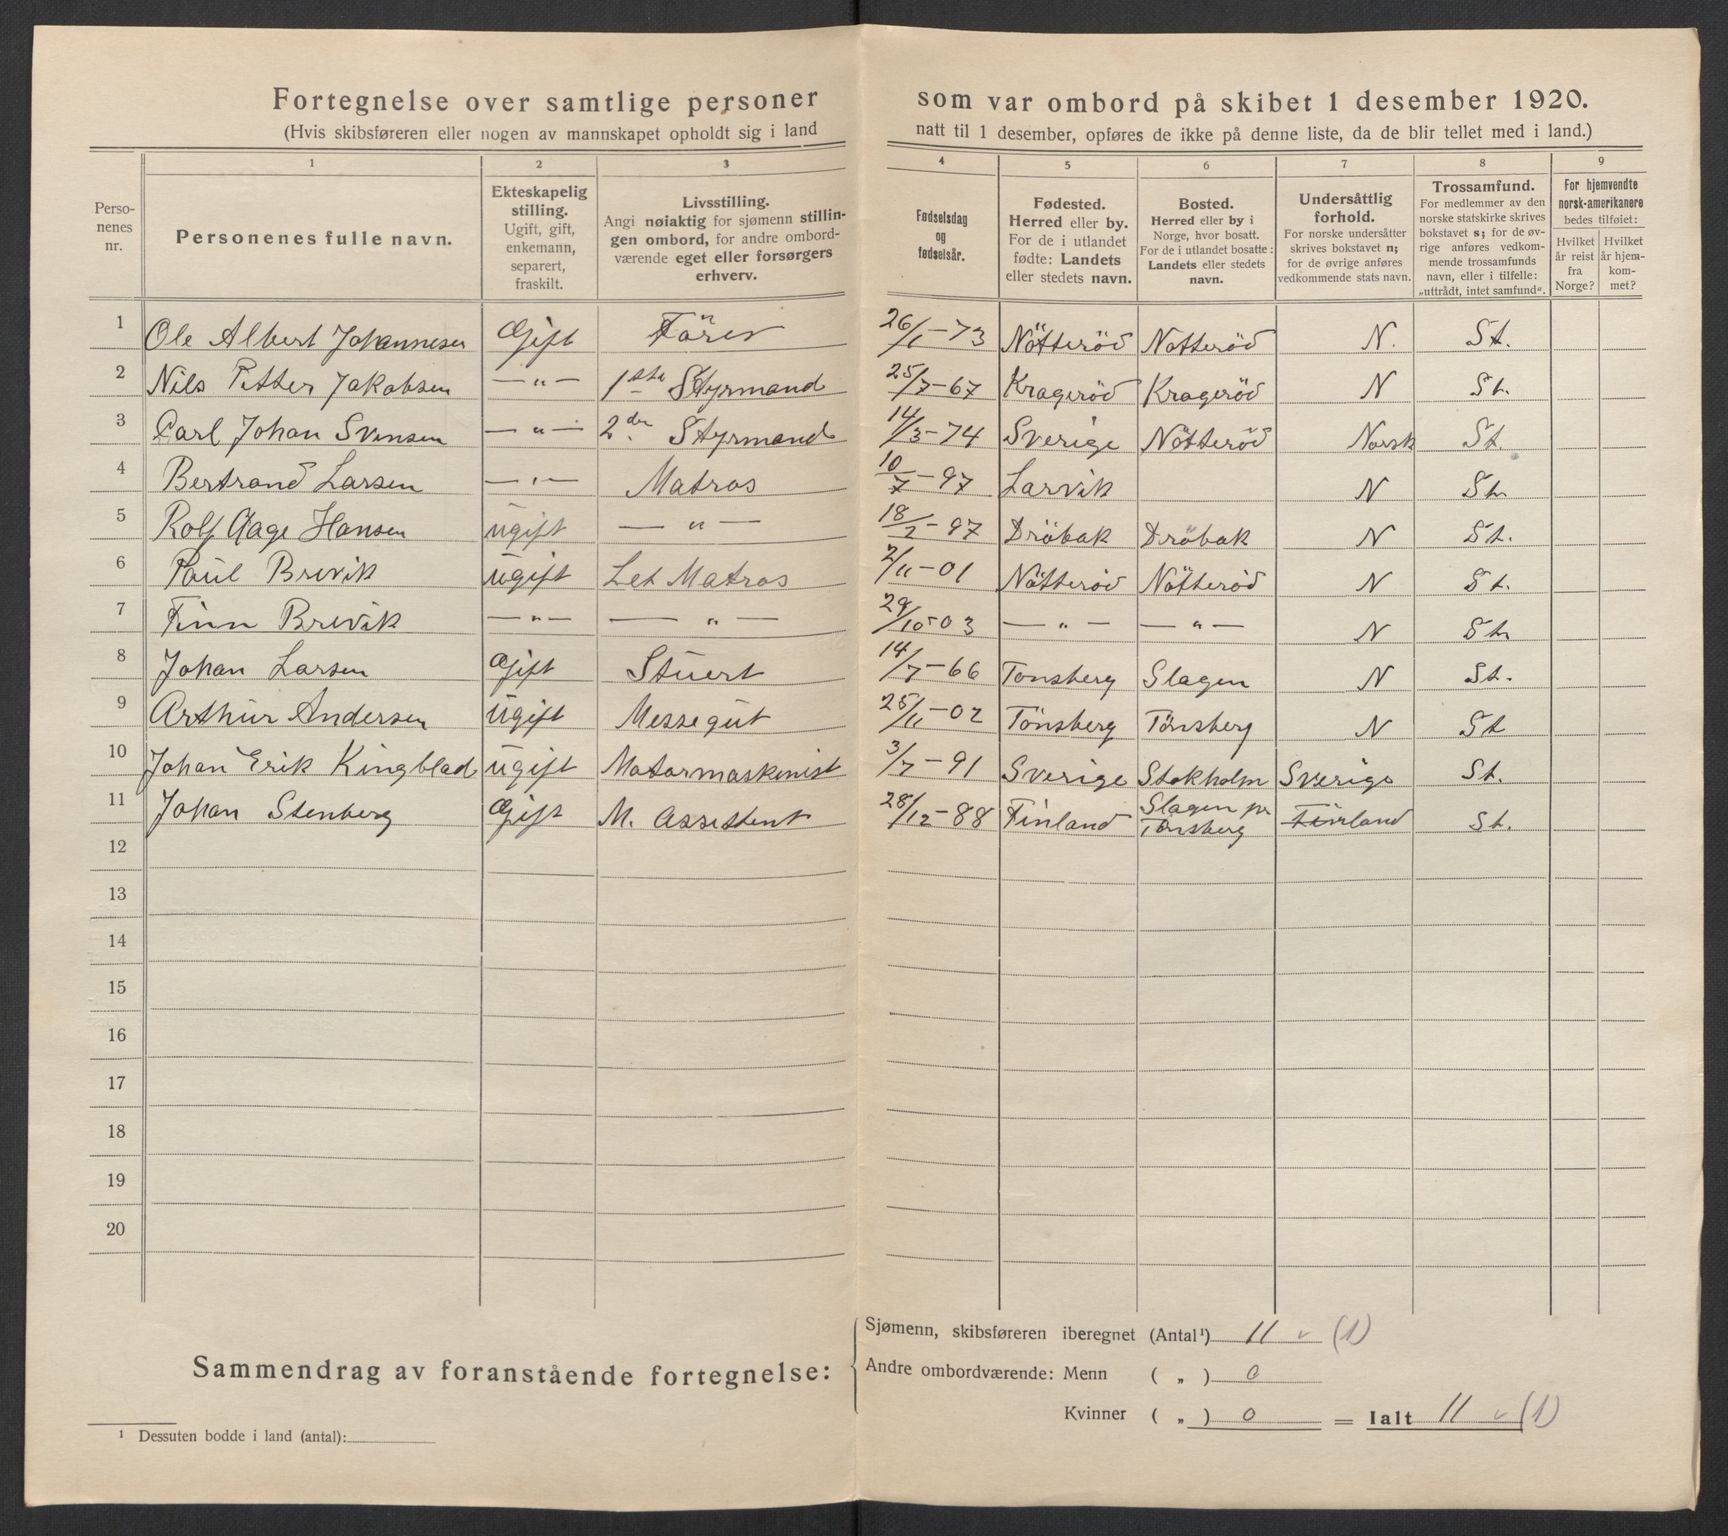 Fortegnelse over samtlige personer som var ombord på skibet 1 desember 1920.
(Hvis skibsføreren eller nogen av mannskapet opholdt sig i land natt til 1 desember, opføres de ikke på denne liste, da de blir tellet med i land.)
1 2 3 4 5 6 7 8 9
Personenes nr.
Personenes fulle navn.
Ekteskapelig stilling. Ugift, gift, enkemann, separert, fraskilt.
Livsstilling. Angi nøiaktig for sjømenn stillingen ombord, for andre ombordværende eget eller forsørgers erhverv.
Fødselsdag og fødselsår.
Fødested. Herred eller by. For de i utlandet fødte: Landets eller stedets navn.
Bosted. Herred eller by i Norge, hvor bosatt. For de i utlandet bosatte: Landets eller stedets navn.
Undersåttlig forhold. For norske undersåtter skrives bokstavet n; for de øvrige anføres vedkommende stats navn.
Trossamfund. For medlemmer av den norske statskirke skrives bokstavet s; for de øvrige anføres vedkommende trossamfunds navn, eller i tilfelle: „uttrådt, intet samfund“.
For hjemvendte norsk-amerikanere bedes tilføiet: Hvilket år reist fra Norge? Hvilket år hjemkommet?
1 Ole Albert Johannesen Gift Förer 26/1-73 Nötteröd Nötteröd N. St.
2 Nils Petter Jakobsen —„— 1ste Styrmand 25/7-67 Krageröd Krageröd N St.
3 Carl Johan Svensen —„— 2den Styrmand 14/3-74 Sverige Nötteröd Norsk St.
4 Bertrand Larsen —„— Matros 10/7-97 Larvik N St.
5 Rolf Aage Hansen Ugift —„— 18/2-97 Dröbak Dröbak N St.
6 Paul Brevik Ugift Let Matros 2/11-01 Nötteröd Nötteröd N St.
7 Finn Brevik —„— —„— 29/10-03 —„— —„— N St.
8 Johan Larsen Gift Stuert 14/7-66 Tonsberg Slagen N St.
9 Arthur Andersen Ugift Messegut 25/11-02 Tönsberg Tönsberg N St
10 Johan Erik Kingblad Ugift Motormaskinist 3/7-91 Sverige Stokholm Sverige St.
11 Johan Stenberg Gift M. Assistent 28/12-88 Finland Slagen pr Tönsberg Finland St.
12
13
14
15
16
17
18
19
20
Sammendrag av foranstående fortegnelse:
Sjømenn, skibsføreren iberegnet (Antal¹) 11 (1)
Andre ombordværende: Menn ( „ ) 0
Kvinner ( „ ) 0 = Ialt 11 (1)
¹ Dessuten bodde i land (antal):